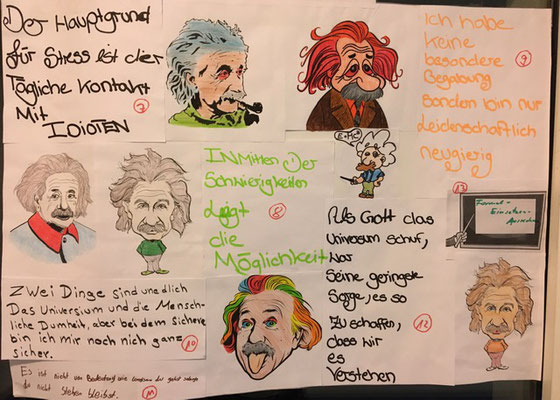 Der Hauptgrund
für Stress ist der
Tägliche Kontakt
Mit
IDIOTEN
7
Ich habe
keine
besondere
Begabung
sonden bin nur
Leidenschaftlich
neugierig
9
E=mc²
INMitten Der
Schwierigkeiten
Liegt
die
Möglichkeit
8
13
Formel-
Einsetzen-
Ausrechnen
Als Gott das
Universum schuf,
war
seine geringste
Sorge, es so
zu schaffen,
dass wir
es
Verstehen
12
Zwei Dinge sind unedlich
Das Universium und die Mensch-
liche Dumheit, aber bei dem Sichere
bin ich mir noch nich ganz
sicher.
10
Es ist nicht von Bedeutung wie langsam du gehst solange
du nicht stehen bleibst.
11